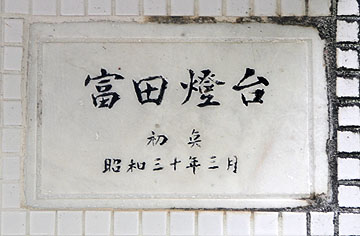 富田燈台
初点
昭和三十年三月